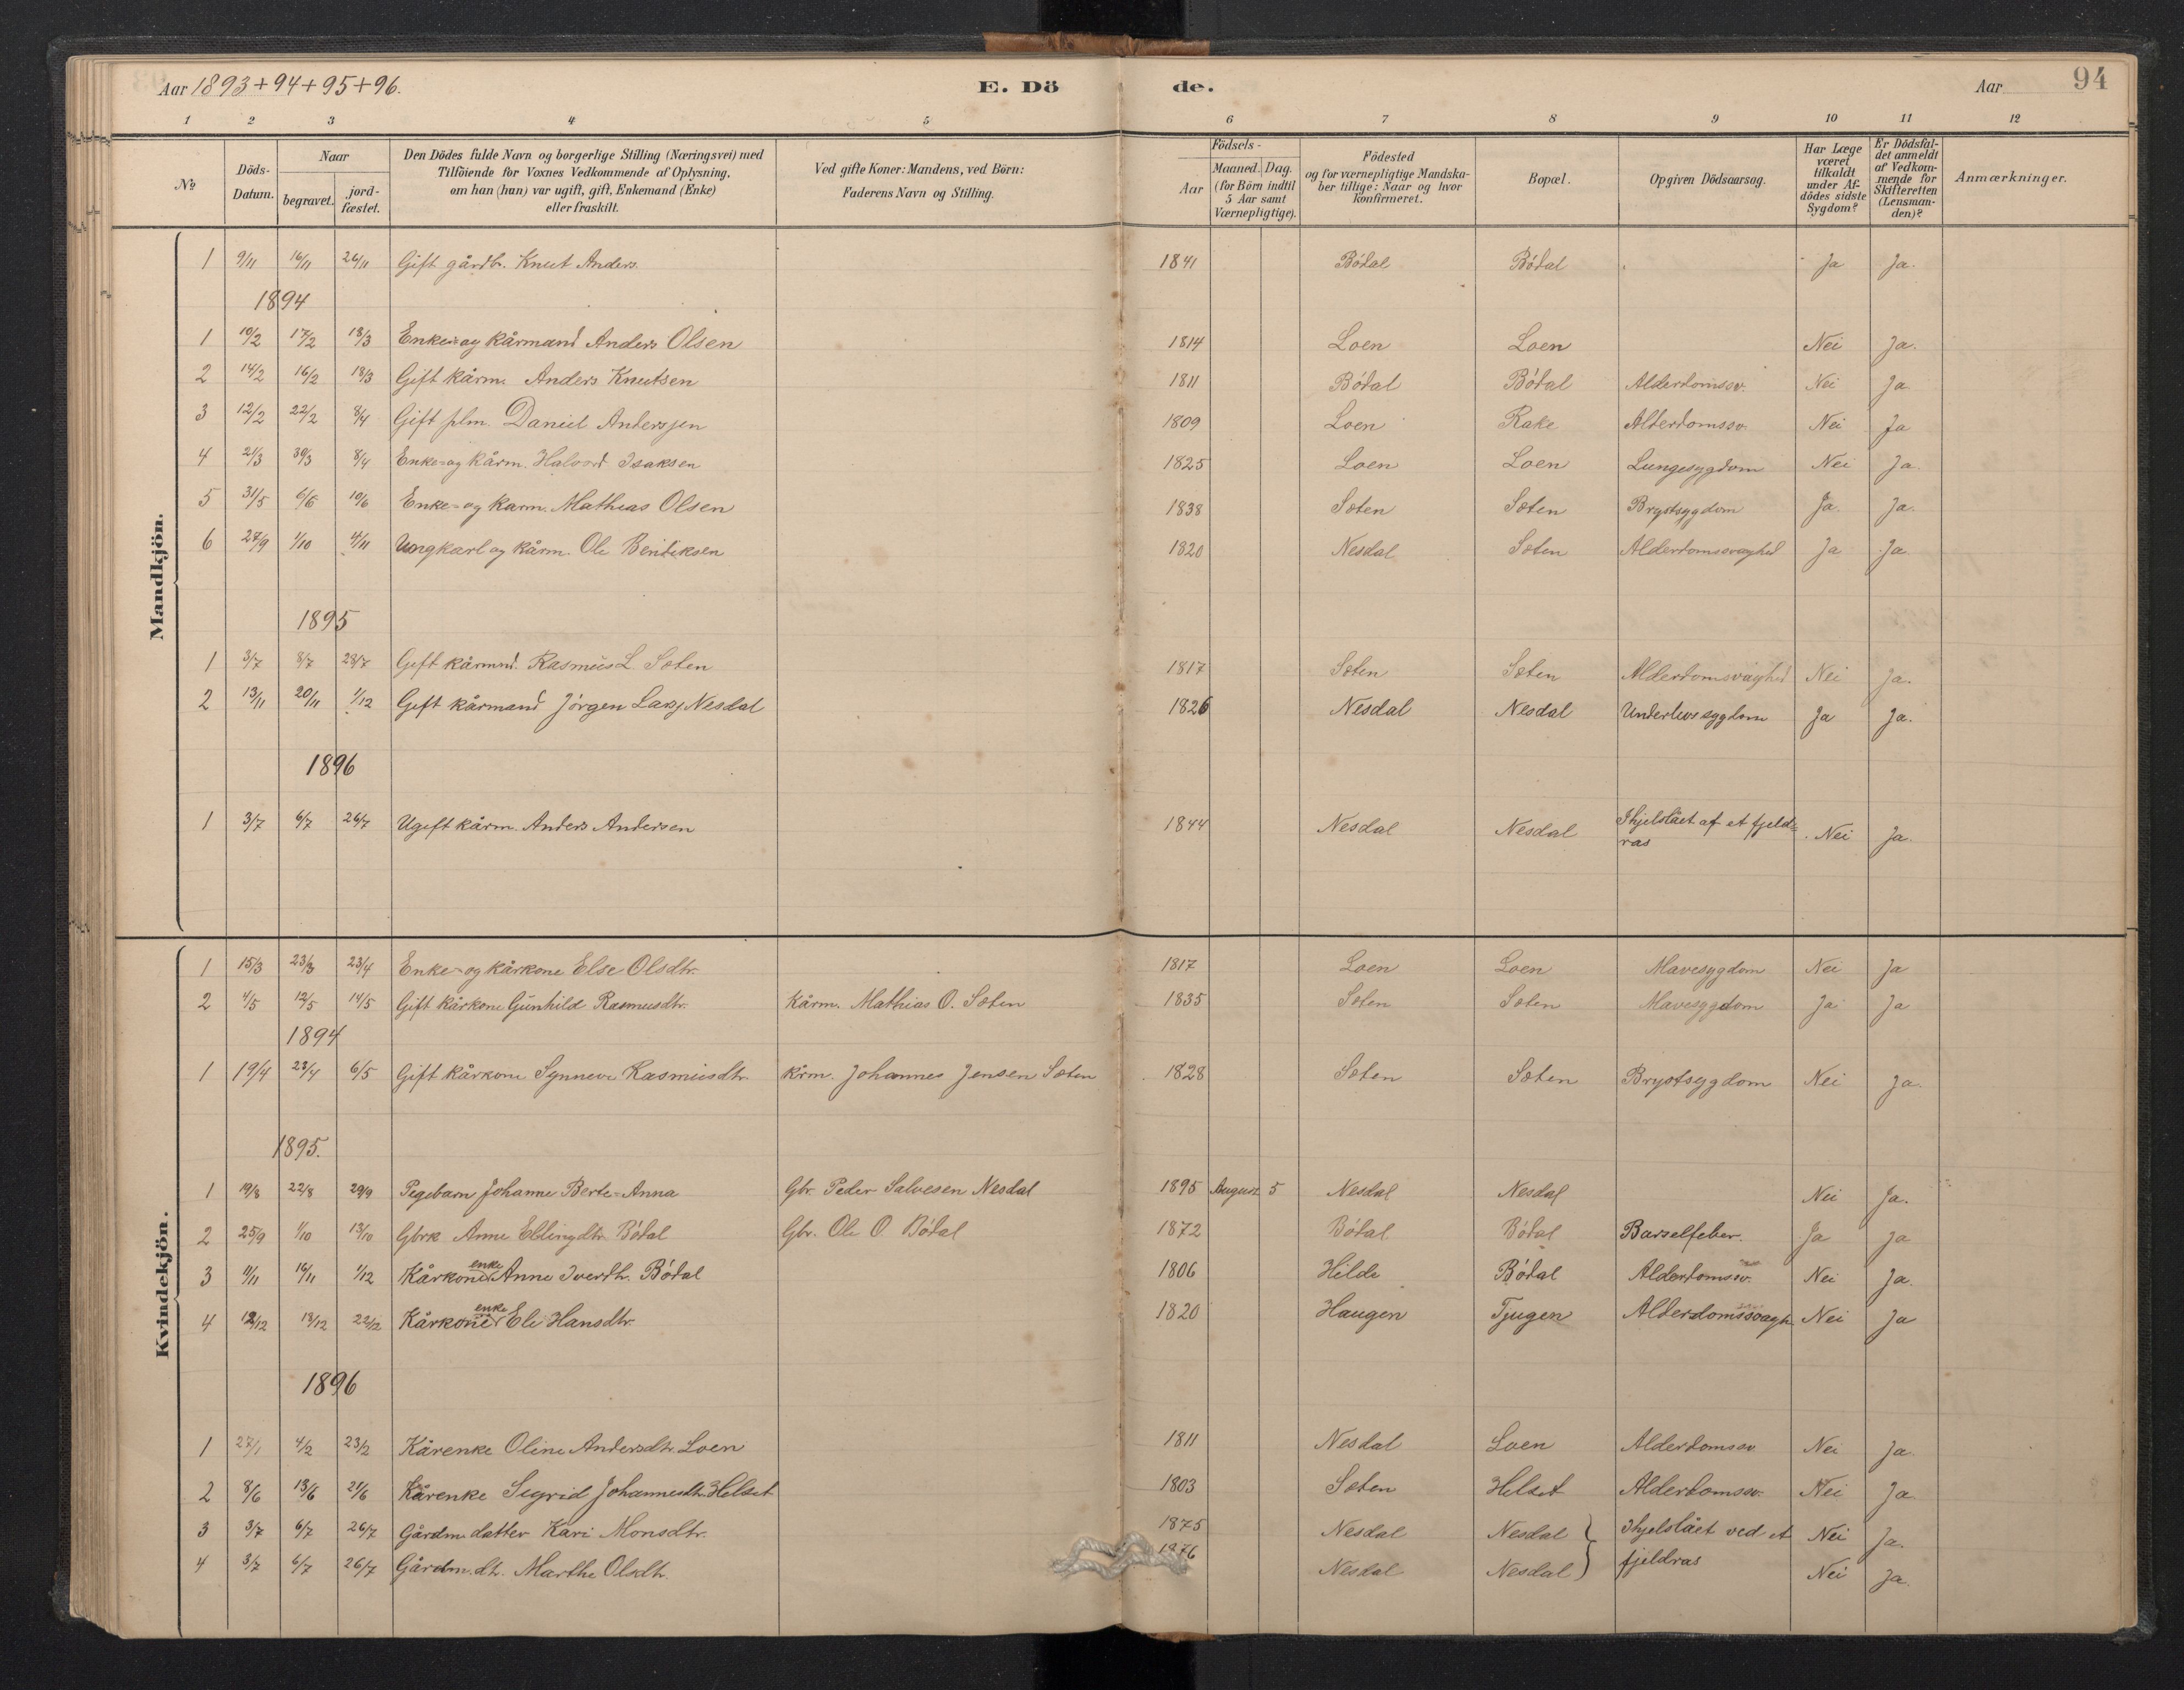 Aar 1893+94+95+96. E. Dö de. Aar 94
1 2 3 4 5 6 7 8 9 10 11 12
No
Döds-Datum.
Naar
begravet.
jord-fæstet.
Den Dödes fulde Navn og borgerlige Stilling (Næringsvei) med
Tilföiende for Voxnes Vedkommende af Oplysning,
om han (hun) var ugift, gift, Enkemand (Enke)
eller fraskilt.
Ved gifte Koner: Mandens, ved Börn:
Faderens Navn og Stilling.
Födsels-
Aar
Maaned. Dag.
(for Börn indtil
5 Aar samt
Værnepligtige).
Födested
og for værnepligtige Mandska-
ber tillige: Naar og hvor
konfirmeret.
Bopæl.
Opgiven Dödsaarsag.
Har Læge
været
tilkaldt
under Af-
dödes sidste
Sygdom?
Er Dödsfal-
det anmeldt
af Vedkom-
mende for
Skifteretten
(Lensman-
den)?
Anmærkninger.
Mandkjön.
1 9/11 16/11 26/11 Gift gårdbr. Knut Anders. 1841 Bödal Bödal Ja Ja.
1894
1 10/2 17/2 18/3 Enke- og kårmand Anders Olsen 1814 Loen Loen Nei Ja.
2 14/2 16/2 18/3 Gift kårm. Anders Knutsen 1811 Bödal Bödal Alderdomssv. Nei Ja
3 12/2 22/2 8/4 Gift plm. Daniel Anderssen 1809 Loen Rake Alderdomssv. Nei Ja
4 21/3 30/3 8/4 Enke- og kårm. Halvord Isaksen 1825 Loen Loen Lungesygdom Nei Ja.
5 31/5 6/6 10/6 Enke- og karm. Mathias Olsen 1838 Sæten Sæten Brystsygdom Ja. Ja.
6 27/9 1/10 4/11 Ungkarl og kårm. Ole Bendiksen 1820 Nesdal Sæten Alderdomssvaghed Ja Ja
1895
1 3/7 8/7 28/7 Gift kårmd. Rasmus L. Sæten 1817 Sæten Sæten Alderdomsvaghed Nei Ja.
2 13/11 20/11 1/12 Gift kårmand Jörgen Lasj. Nesdal 1826 Nesdal Nesdal Underlivssygdom Ja Ja.
1896
1 3/7 6/7 26/7 Ugift kårm. Anders Andersen 1844 Nesdal Nesdal Ihjelslået af et fjeld-
ras Nei Ja.
Kvindekjön.
1 15/3 23/3 23/4 Enke- og kårkone Else Olsdtr. 1817 Loen Loen Mavesygdom Nei Ja
2 4/5 12/5 14/5 Gift kårkone Gunhild Rasmusdtr. Kårm. Mathias O. Sæten 1835 Sæten Sæten Mavesygdom Ja Ja
1894
1 19/4 28/4 6/5 Gift kårkone Synneve Rasmusdtr. krm. Johannes Jensen Sæten 1828 Sæten Sæten Brystsygdom Nei Ja.
1895.
1 19/8 22/8 29/9 Pigebarn Johanne Berte-Anna Gbr. Peder Salvesen Nesdal 1895 August 5 Nesdal Nesdal Nei Ja.
2 25/9 1/10 13/10 Gbrk Anne Ellingdtr. Bödal Gbr. Ole O Bödal 1872 Bödal Bödal Barselfeber. Ja Ja
3 11/11 16/11 1/12 Kårkone enke Anne Iverdtr. Bödal 1806 Hilde Bödal Alderdomssv. Nei Ja.
4 12/12 18/12 22/12 Kårkone enke Eli Hansdtr. 1820 Haugen Tjugen Alderdomssvagh Nei Ja
1896
1 27/1 4/2 23/2 Kårenke Oline Andersdtr. Loen 1811 Nesdal Loen Alderdomssv Nei Ja.
2 8/6 13/6 21/6 Kårenke Sigrid Johannesdtr. Helset 1803 Sæten Helset Alderdomssv. Nei Ja
3 3/7 6/7 26/7 Gårdm. datter Kari Monsdtr. 1875 Nesdal Nesdal Ihjelslået ved et Nei Ja.
4 3/7 6/7 26/7 Gårdm. dtr. Marthe Olsdtr. 1876 Nesdal Nesdal fjeldras Nei Ja.